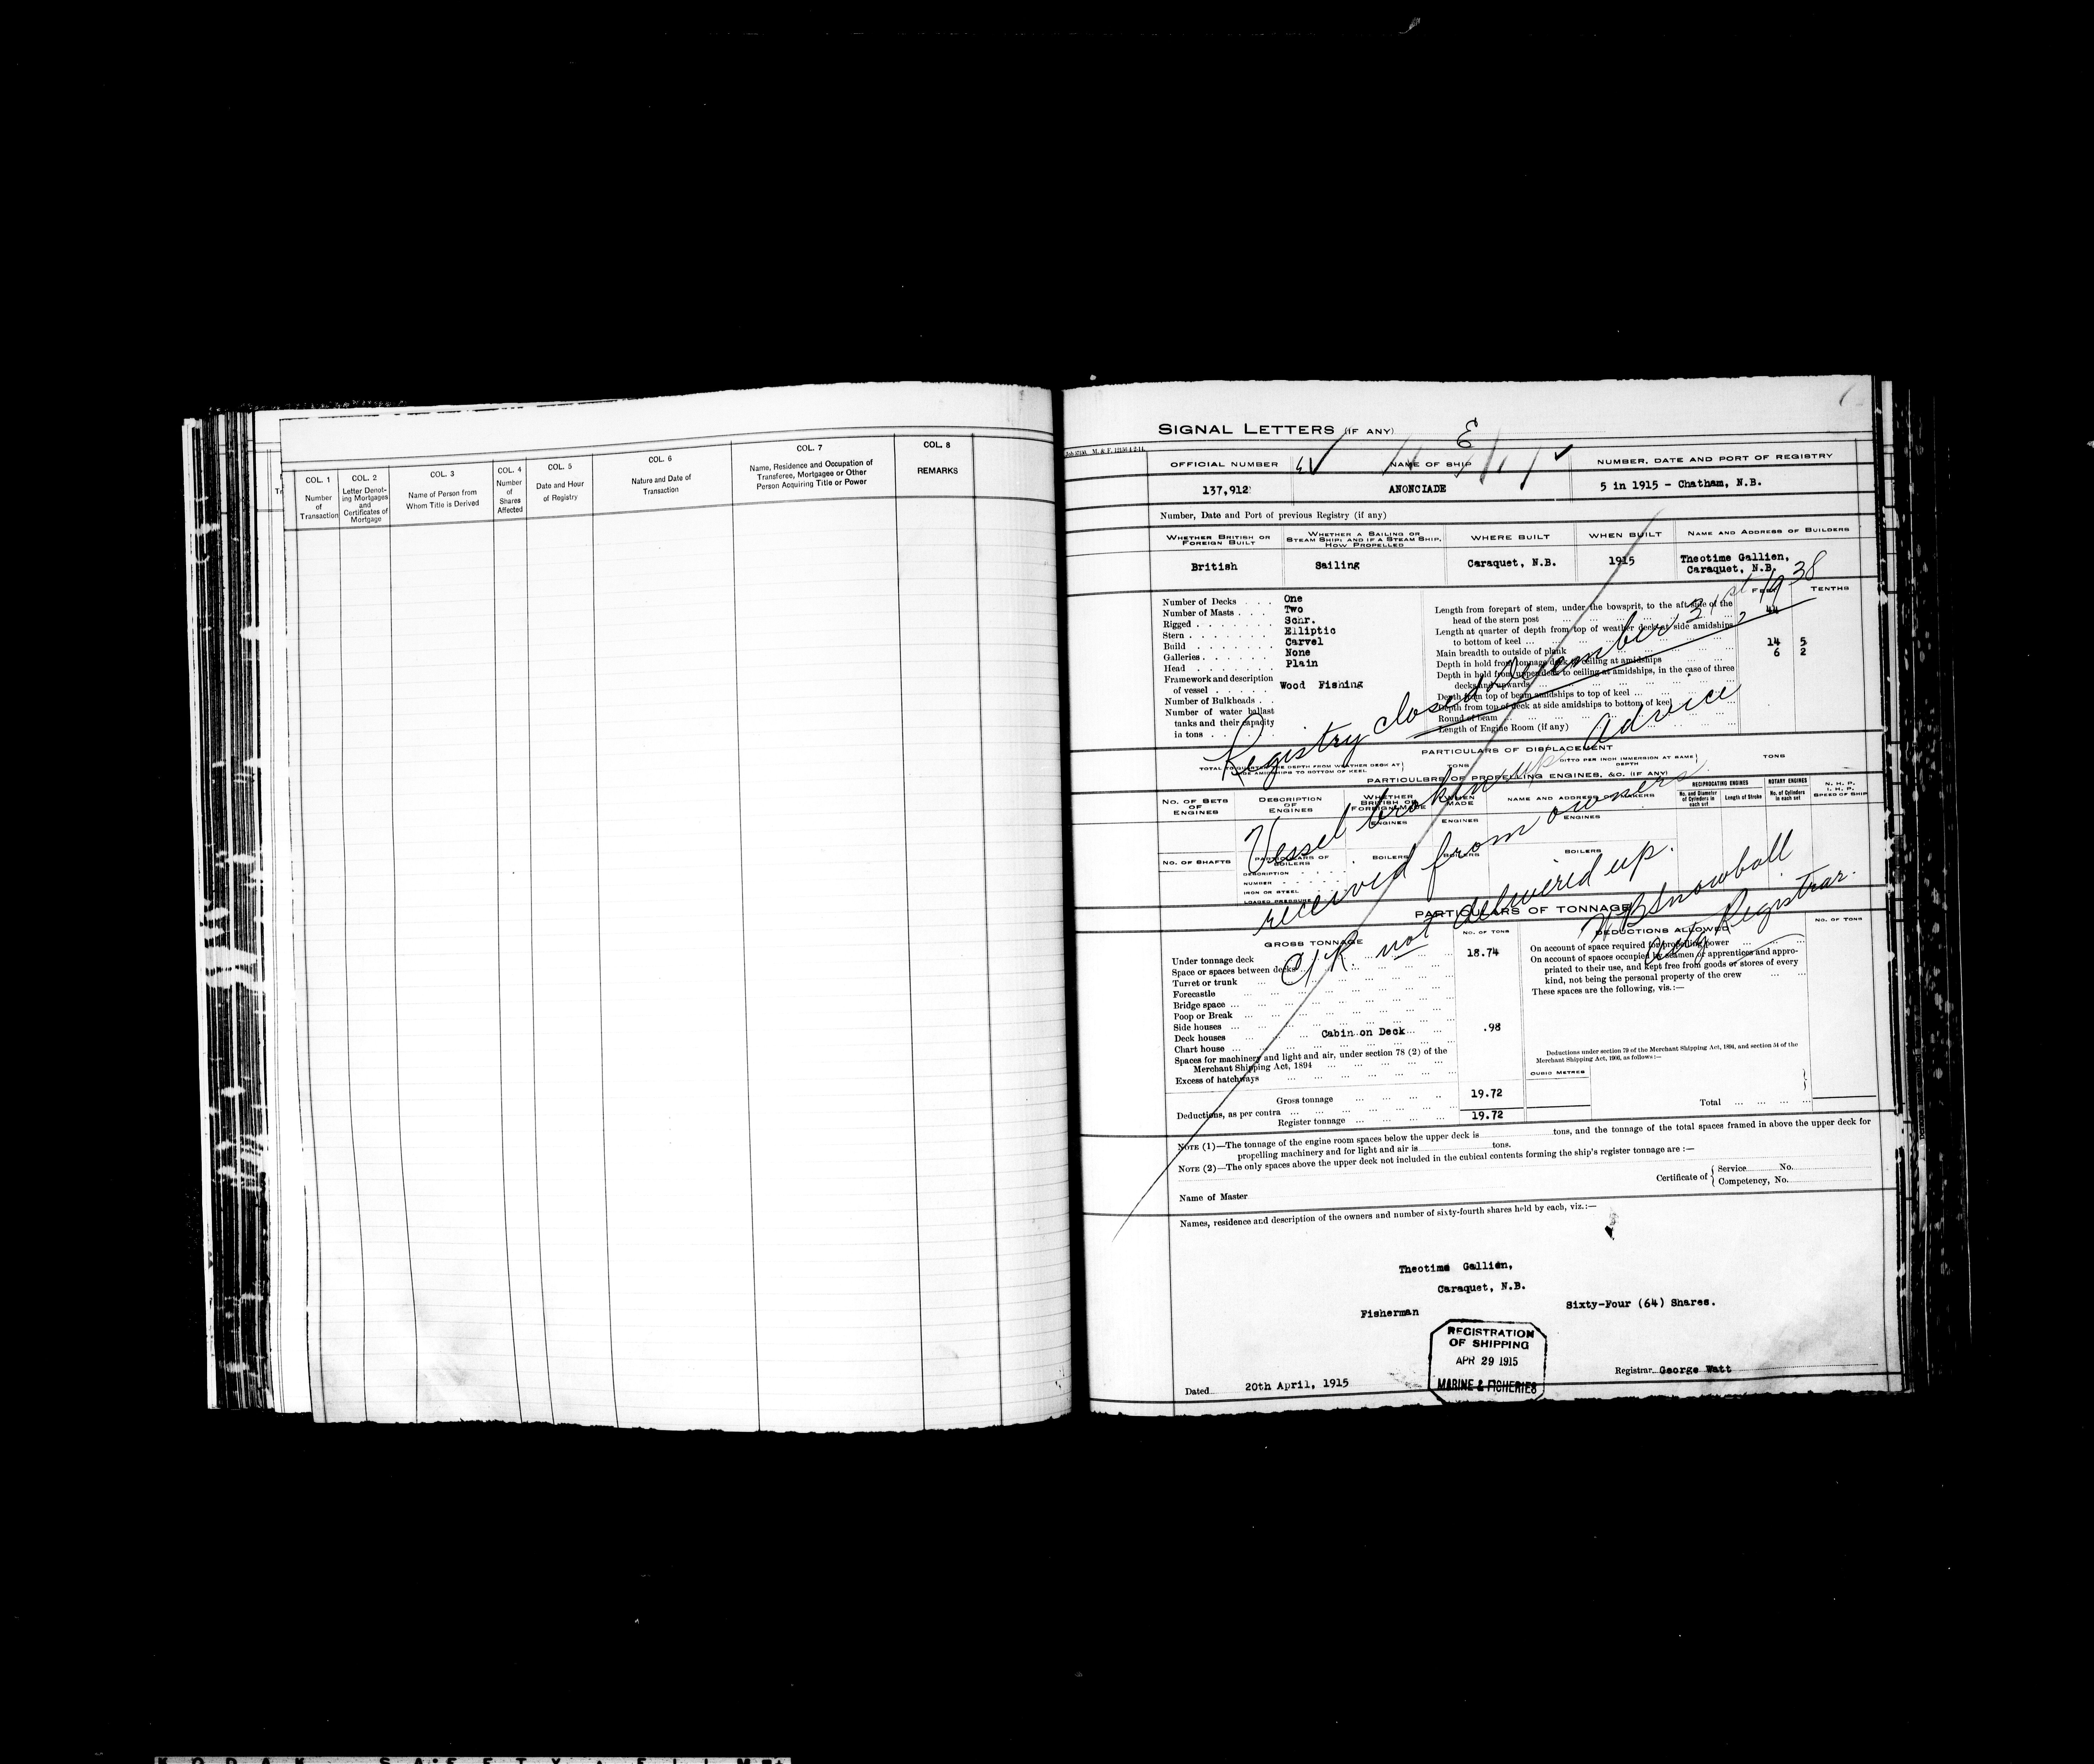 COL. 1
Number
of
Transaction
COL. 2
Letter Denot-
ing Mortgages
and
Certificates of
Mortgage
COL. 3
Name of Person from
Whom Title is Derived
COL. 4
Number
of
Shares
Affected
COL. 5
Date and Hour
of Registry
COL. 6
Nature and Date of
Transaction
COL. 7
Name, Residence and Occupation of
Transferee, Mortgagee or Other
Person Acquiring Title or Power
COL. 8
REMARKS
SIGNAL LETTERS (IF ANY)
OFFICIAL NUMBER
NAME OF SHIP
NUMBER, DATE AND PORT OF REGISTRY
137,912
ANONCIADE
5 in 1915 - Chatham, N.B.
Number, Date and Port of previous Registry (if any)
WHETHER BRITISH OR
FOREIGN BUILT
WHETHER A SAILING OR
STEAM SHIP; AND IF A STEAM SHIP,
HOW PROPELLED
WHERE BUILT
WHEN BUILT
NAME AND ADDRESS OF BUILDERS
British
Sailing
Caraquet, N.B.
1915
Theotime Gallien,
Caraquet, N.B.
Number of Decks One
Number of Masts Two
Rigged Schr.
Stern Elliptic
Build Carvel
Galleries None
Head Plain
Framework and description
of vessel Wood Fishing
Number of Bulkheads
Number of water ballast
tanks and their capacity
in tons
FEET TENTHS
Length from forepart of stem, under the bowsprit, to the aft side of the
head of the stern post 44
Length at quarter of depth from top of weather deck at side amidships
to bottom of keel
Main breadth to outside of plank 14 5
Depth in hold from tonnage deck to ceiling at amidships 6 2
Depth in hold from upper deck to ceiling at amidships, in the case of three
decks and upwards
Depth from top of beam amidships to top of keel
Depth from top of deck at side amidships to bottom of keel
Round of beam
Length of Engine Room (if any)
Registry closed December 31st, 1938
Vessel broken up advice
received from owners.
C/R. not delivered up.
W B Snowball
Actg Registrar.
PARTICULARS OF DISPLACEMENT
TOTAL TO QUARTER THE DEPTH FROM WEATHER DECK AT
SIDE AMIDSHIPS TO BOTTOM OF KEEL
TONS
DITTO PER INCH IMMERSION AT SAME
DEPTH
TONS
PARTICULARS OF PROPELLING ENGINES, &C. (IF ANY)
NO. OF SETS
OF
ENGINES
DESCRIPTION
OF
ENGINES
WHETHER
BRITISH OR
FOREIGN MADE
WHEN
MADE
NAME AND ADDRESS OF MAKERS
RECIPROCATING ENGINES
No. and Diameter
of Cylinders in
each set
Length of Stroke
ROTARY ENGINES
No. of Cylinders
in each set
N. H. P.
I. H. P.
SPEED OF SHIP
ENGINES
ENGINES
ENGINES
NO. OF SHAFTS
PARTICULARS OF
BOILERS
BOILERS
BOILERS
BOILERS
DESCRIPTION
NUMBER
IRON OR STEEL
LOADED PRESSURE
PARTICULARS OF TONNAGE
GROSS TONNAGE
NO. OF TONS
DEDUCTIONS ALLOWED
NO. OF TONS
Under tonnage deck 18.74
Space or spaces between decks
Turret or trunk
Forecastle
Bridge space
Poop or Break
Side houses
Deck houses Cabin on Deck .98
Chart house
Spaces for machinery and light and air, under section 78 (2) of the
Merchant Shipping Act, 1894
Excess of hatchways
Gross tonnage 19.72
Deductions, as per contra
Register tonnage 19.72
On account of space required for propelling power
On account of spaces occupied by seamen or apprentices and appro-
priated to their use, and kept free from goods or stores of every
kind, not being the personal property of the crew
These spaces are the following, vis.:—
Deductions under section 79 of the Merchant Shipping Act, 1894, and section 54 of the
Merchant Shipping Act, 1906, as follows:—
CUBIC METRES
Total
NOTE (1)—The tonnage of the engine room spaces below the upper deck is tons, and the tonnage of the total spaces framed in above the upper deck for
propelling machinery and for light and air is tons.
NOTE (2)—The only spaces above the upper deck not included in the cubical contents forming the ship's register tonnage are :—
Name of Master
Certificate of { Service No.
Competency, No.
Names, residence and description of the owners and number of sixty-fourth shares held by each, viz.:—
Theotime Gallien,
Caraquet, N.B.
Fisherman
Sixty-Four (64) Shares.
REGISTRATION
OF SHIPPING
APR 29 1915
MARINE & FISHERIES
Dated 20th April, 1915
Registrar George Watt
KODAK SAFETY FILM